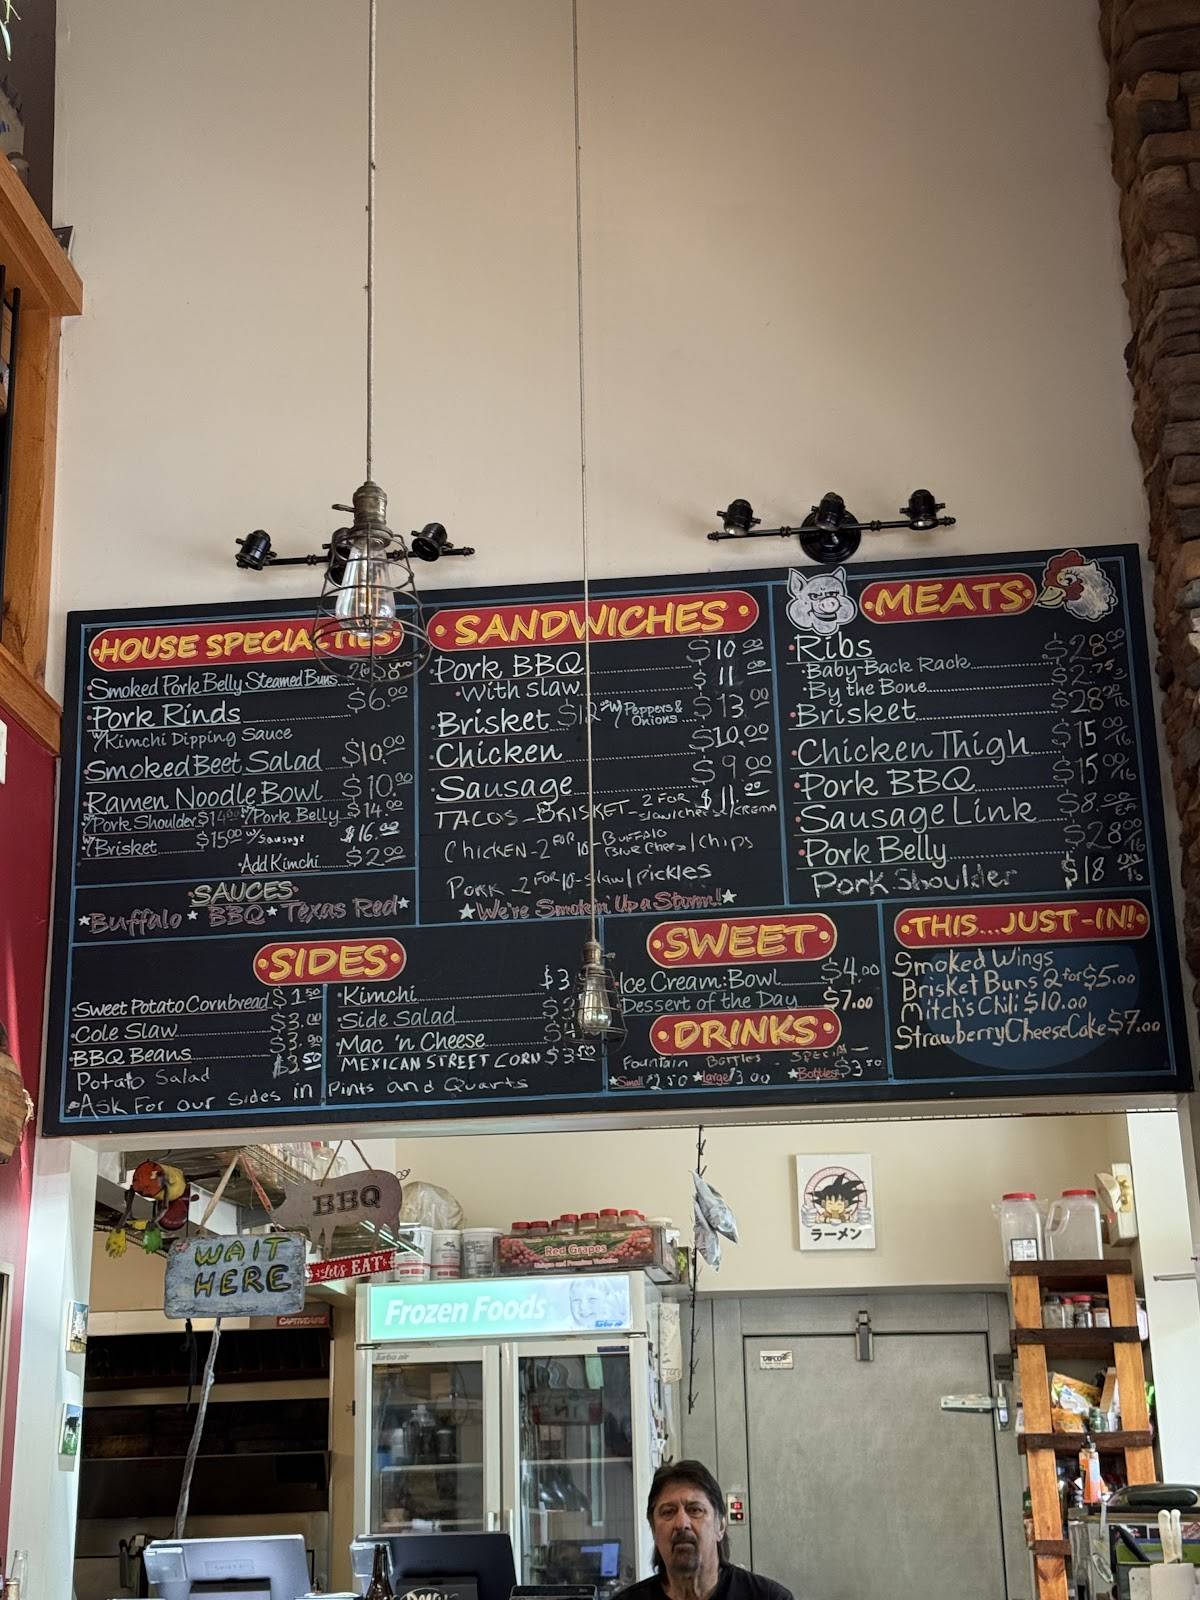 HOUSE SPECIALTIES
Smoked Pork Belly Steamed Buns
Pork Rinds $6.00
w/Kimchi Dipping Sauce
Smoked Beet Salad $10.00
Ramen Noodle Bowl $10.00
w/Pork Shoulder w/Pork Belly $14.00
w/Brisket $15.00 w/Sausage $16.00
Add Kimchi $2.00
SAUCES
Buffalo BBQ Texas Red
SANDWICHES
Pork BBQ $10.00
With Slaw $11.00
Brisket w/Peppers & Onions $13.00
Chicken $10.00
Sausage $9.00
TACOS-BRISKET-2 FOR $11.00
CHICKEN-2 FOR 10-BUFFALO
Blue Cheez/chips
PORK-2 FOR 10-Slaw/Pickles
We're Smokin' Up a Storm!!
MEATS
Ribs
Baby-Back Rack $28.00
By the Bone
Brisket $28.00/16
Chicken Thigh $15.00/16
Pork BBQ $15.00/16
Sausage Link
Pork Belly $28.00/16
Pork Shoulder $18
SIDES
Sweet Potato Cornbread $1.50
Cole Slaw $3.00
BBQ Beans
Potato Salad $3.50
Kimchi
Side Salad
Mac 'n Cheese
MEXICAN STREET CORN $3.50
Ask For our Sides in Pints and Quarts
SWEET
Ice Cream: Bowl $4.00
Dessert of the Day $7.00
DRINKS
Fountain Bottles
Small 2.50 Large 3.00 Bottles
THIS...JUST-IN!
Smoked Wings
Brisket Buns 2 for $5.00
Mitch's Chili $10.00
Strawberry CheeseCake $7.00
BBQ
WAIT HERE
Let's EAT
Red Grapes
Frozen Foods
Turbo air
ラーメン